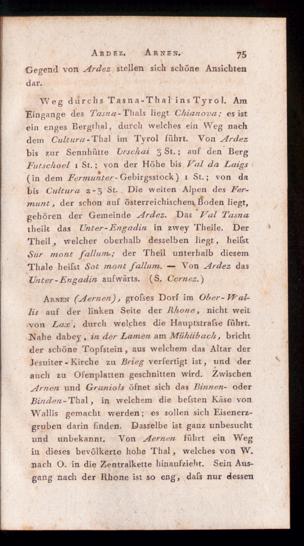 Ardez. Arnen. 75
Gegend von Ardez stellen sich schöne Ansichten
dar.
Weg durchs Tasna-Thal ins Tyrol. Am
Eingange des Tasna-Thals liegt Chianova; es ist
ein enges Bergthal, durch welches ein Weg nach
dem Cultura-Thal im Tyrol führt. Von Ardez
bis zur Sennhütte Urschai 3 St.; auf den Berg
Futschoel 1 St.; von der Höhe bis Val da Laigs
(in dem Fermunter-Gebirgsstock) 1 St.; von da
bis Cultura 2-3 St. Die weiten Alpen des Fer-
munt, der schon auf österreichischem Boden liegt,
gehören der Gemeinde Ardez. Das Val Tasna
theilt das Unter-Engadin in zwey Theile. Der
Theil, welcher oberhalb desselben liegt, heiſst
Sur mont fallum; der Theil unterhalb diesem
Thale heiſst Sot mont fallum. — Von Ardez das
Unter-Engadin aufwärts. (S. Cernez.)
Arnen (Aernen), groſses Dorf im Ober-Wal-
lis auf der linken Seite der Rhone, nicht weit
von Lax, durch welches die Hauptstraſse führt.
Nahe dabey, in der Lamen am Mühibach, bricht
der schöne Topfstein, aus welchem das Altar der
Jesuiter-Kirche zu Brieg verfertigt ist, und der
auch zu Ofenplatten geschnitten wird. Zwischen
Arnen und Graniols öfnet sich das Binnen- oder
Binden-Thal, in welchem die beſsten Käse von
Wallis gemacht werden; es sollen sich Eisenerz-
gruben darin finden. Dasselbe ist ganz unbesucht
und unbekannt. Von Aernen führt ein Weg
in dieses bevölkerte hohe Thal, welches von W.
nach O. in die Zentralkette hinaufzieht. Sein Aus-
gang nach der Rhone ist so eng, daſs nur dessen